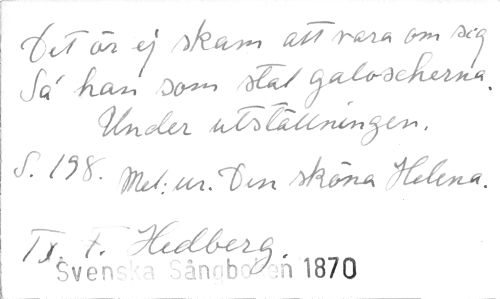 Det är ej skam att vara om sig
Sa' han som stal galoscherna.
Under utställningen.
S. 198. Mel: ur. Den sköna Helena.
Tx. F. Hedberg.
Svenska Sångboken 1870